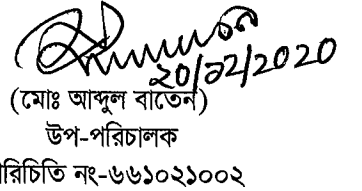 ২০/১২/2020
(মোঃ আব্দুল বাতেন)
উপ-পরিচালক
রিচিতি নং-৬৬১০২১০০২